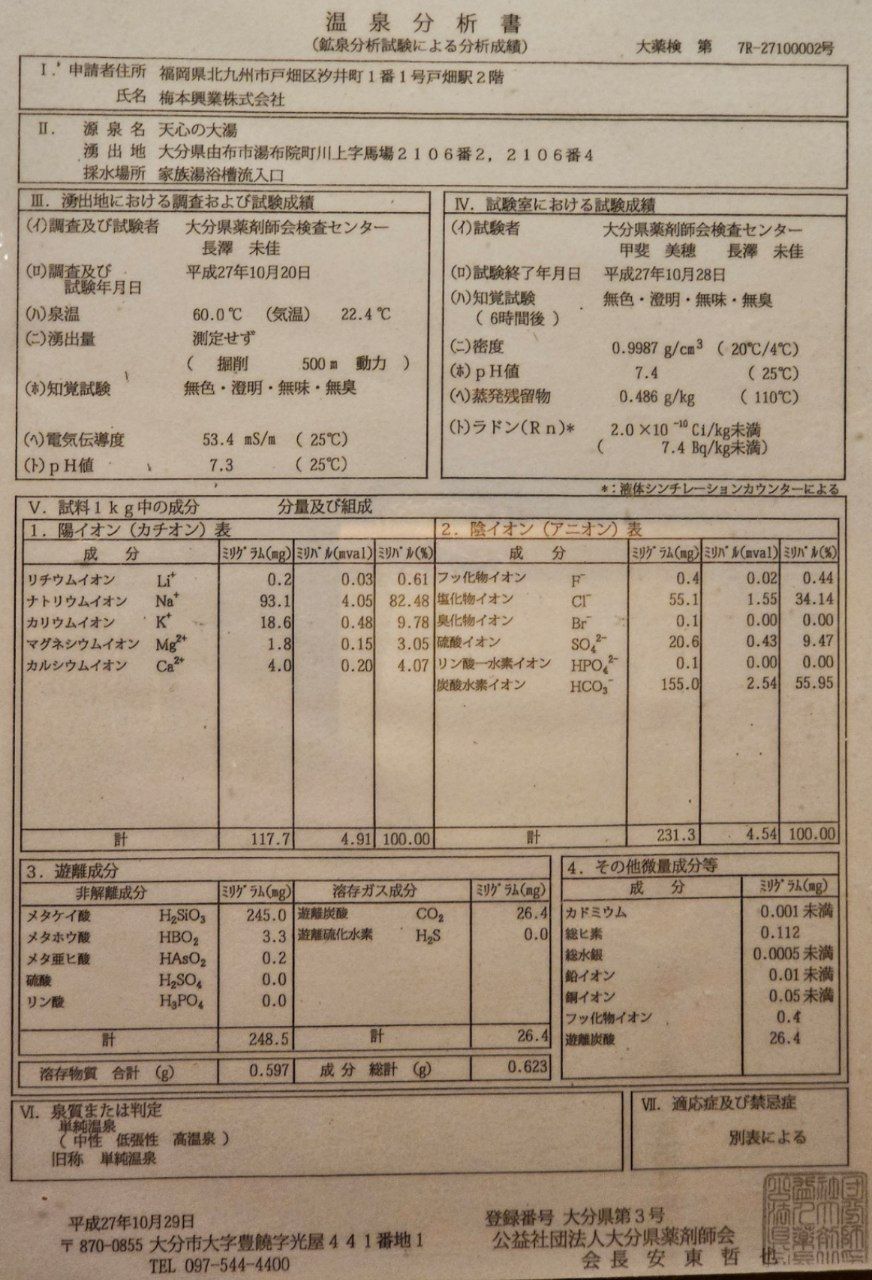 温泉分析書
(鉱泉分析試験による分析成績)
大薬検 第 7R-27100002号
Ⅰ. 申請者住所 福岡県北九州市戸畑区汐井町1番1号戸畑駅2階
氏名 梅本興業株式会社
Ⅱ. 源泉名 天心の大湯
湧出地 大分県由布市湯布院町川上字馬場2106番2,2106番4
採水場所 家族湯浴槽流入口
Ⅲ. 湧出地における調査および試験成績
(イ)調査及び試験者 大分県薬剤師会検査センター
長澤 未佳
(ロ)調査及び
試験年月日 平成27年10月20日
(ハ)泉温 60.0℃ (気温) 22.4℃
(ニ)湧出量 測定せず
( 掘削 500m 動力 )
(ホ)知覚試験 無色・澄明・無味・無臭
(ヘ)電気伝導度 53.4 mS/m ( 25℃)
(ト)pH値 7.3 ( 25℃)
Ⅳ. 試験室における試験成績
(イ)試験者 大分県薬剤師会検査センター
甲斐 美穂 長澤 未佳
(ロ)試験終了年月日 平成27年10月28日
(ハ)知覚試験 無色・澄明・無味・無臭
( 6時間後 )
(ニ)密度 0.9987 g/cm³ ( 20℃/4℃)
(ホ)pH値 7.4 ( 25℃)
(ヘ)蒸発残留物 0.486 g/kg ( 110℃)
(ト)ラドン(Rn)* 2.0×10⁻¹⁰ Ci/kg未満
( 7.4 Bq/kg未満)
*:液体シンチレーションカウンターによる
Ⅴ. 試料1kg中の成分 分量及び組成
1. 陽イオン(カチオン)表
成 分 ミリグラム(mg) ミリバル(mval) ミリバル(%)
リチウムイオン Li⁺ 0.2 0.03 0.61
ナトリウムイオン Na⁺ 93.1 4.05 82.48
カリウムイオン K⁺ 18.6 0.48 9.78
マグネシウムイオン Mg²⁺ 1.8 0.15 3.05
カルシウムイオン Ca²⁺ 4.0 0.20 4.07
計 117.7 4.91 100.00
2. 陰イオン(アニオン)表
成 分 ミリグラム(mg) ミリバル(mval) ミリバル(%)
フッ化物イオン F⁻ 0.4 0.02 0.44
塩化物イオン Cl⁻ 55.1 1.55 34.14
臭化物イオン Br⁻ 0.1 0.00 0.00
硫酸イオン SO₄²⁻ 20.6 0.43 9.47
リン酸一水素イオン HPO₄²⁻ 0.1 0.00 0.00
炭酸水素イオン HCO₃⁻ 155.0 2.54 55.95
計 231.3 4.54 100.00
3. 遊離成分
非解離成分 ミリグラム(mg)
メタケイ酸 H₂SiO₃ 245.0
メタホウ酸 HBO₂ 3.3
メタ亜ヒ酸 HAsO₂ 0.2
硫酸 H₂SO₄ 0.0
リン酸 H₃PO₄ 0.0
計 248.5
溶存ガス成分 ミリグラム(mg)
遊離炭酸 CO₂ 26.4
遊離硫化水素 H₂S 0.0
計 26.4
溶存物質 合計 (g) 0.597 成分 総計 (g) 0.623
4. その他微量成分等
成 分 ミリグラム(mg)
カドミウム 0.001 未満
総ヒ素 0.112
総水銀 0.0005 未満
鉛イオン 0.01 未満
銅イオン 0.05 未満
フッ化物イオン 0.4
遊離炭酸 26.4
Ⅵ. 泉質または判定
単純温泉
( 中性 低張性 高温泉 )
旧称 単純温泉
Ⅶ. 適応症及び禁忌症
別表による
平成27年10月29日
〒870-0855 大分市大字豊饒字光屋441番地1
TEL 097-544-4400
登録番号 大分県第3号
公益社団法人大分県薬剤師会
会長 安東哲也